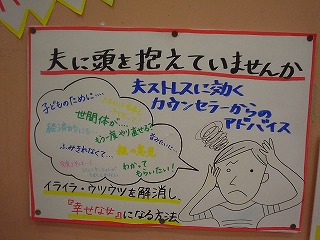 夫に頭を抱えていませんか
夫ストレスに効く
カウンセラーからの
アドバイス
子どものために…
世間体が…
経済的に…
もう一度やり直せる?
ふみきれなくて…
わかって
もらいたい!
イライラ・ウツウツを解消し、
『幸せな女』になる方法